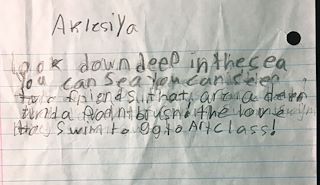 Aklesiya
look down deep in the sea
You can sea you can seen
two friends that are a down
and a Paintbrush the love
to Swim to go to Art class!